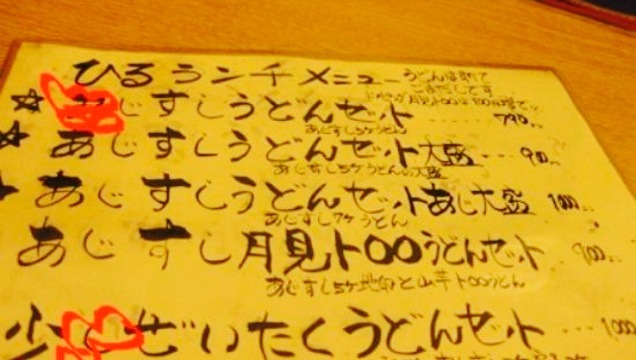 ひるランチメニュー
うどんは全て
☆ じすしうどんセット 790
あじすし5ケうどん
☆ あじすしうどんセット大盛
あじすし5ケうどん大盛
あじすしうどんセットあじ大盛 1000
あじすし7ケうどん
あじすし月見トロロうどんセット 900
あじすし5ケ地卵と山芋トロロうどん
少 ぜいたくうどんセット 1000